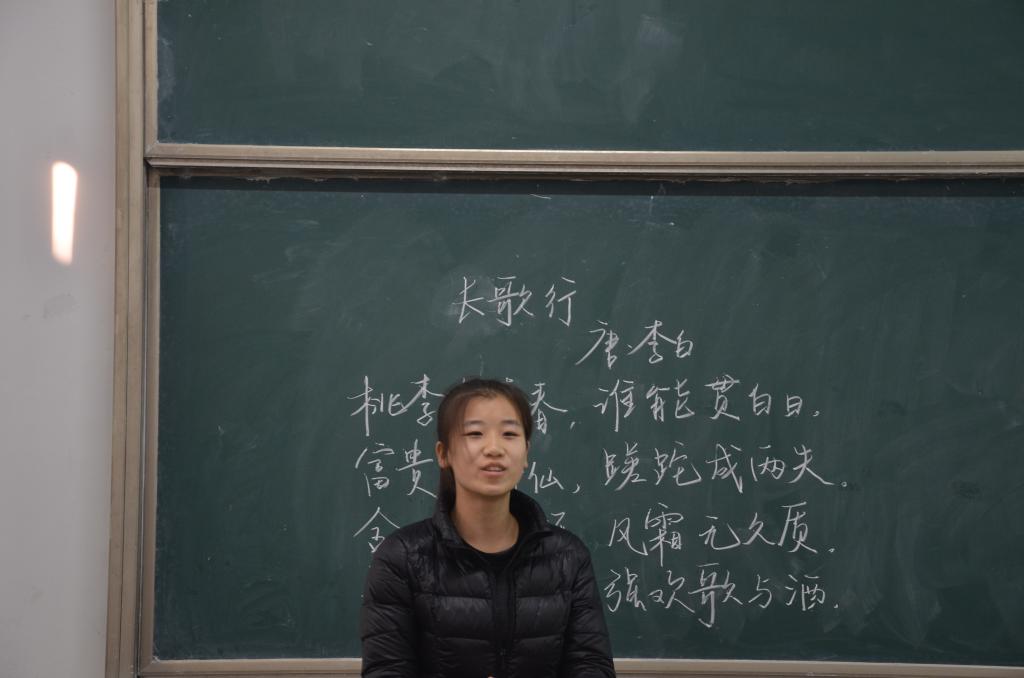 长歌行
唐:李白
桃李 春,谁能贯白日.
富贵 仙,蹉跎成两失.
金 风霜无久质.
强欢歌与酒.